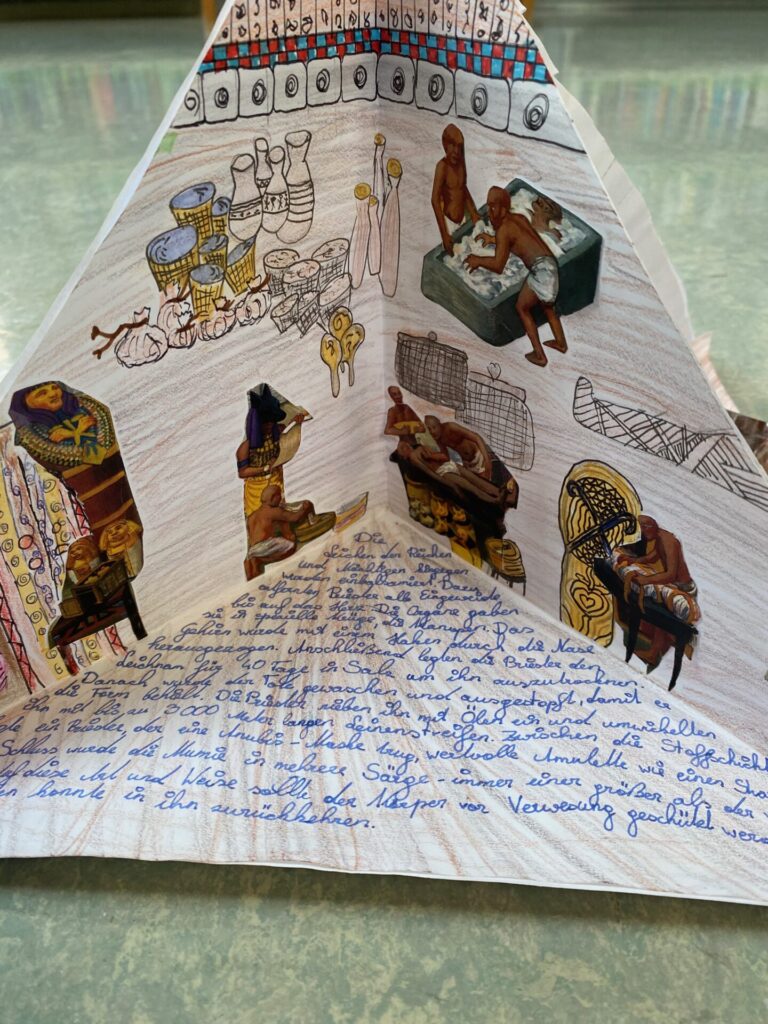 Die
Leichen der Reichen
und Mächtigen
wurden einbalsamiert. Dazu
entfernten Priester alle Eingeweide
bis auf das Herz. Die Organe gaben
sie in spezielle Krüge, die Kanopen. Das
Gehirn wurde mit einem Haken durch die Nase
herausgezogen. Anschließend legten die Priester den
Leichnam für 40 Tage in Salz um ihn auszutrocknen.
Danach wurde der Tote gewaschen und ausgestopft, damit er
die Form behält. Die Priester rieben ihn mit Ölen ein und umwickelten
ihn mit bis zu 3000 Meter langen Leinenstreifen. Zwischen die Stoffschicht
ein Priester, der eine Anubis-Maske trug, wertvolle Amulette wie einen
Schluss wurde die Mumie in mehrere Särge - immer einer größer als der
diese Art und Weise sollte der Körper vor Verwesung geschützt
konnte in ihn zurückkehren.